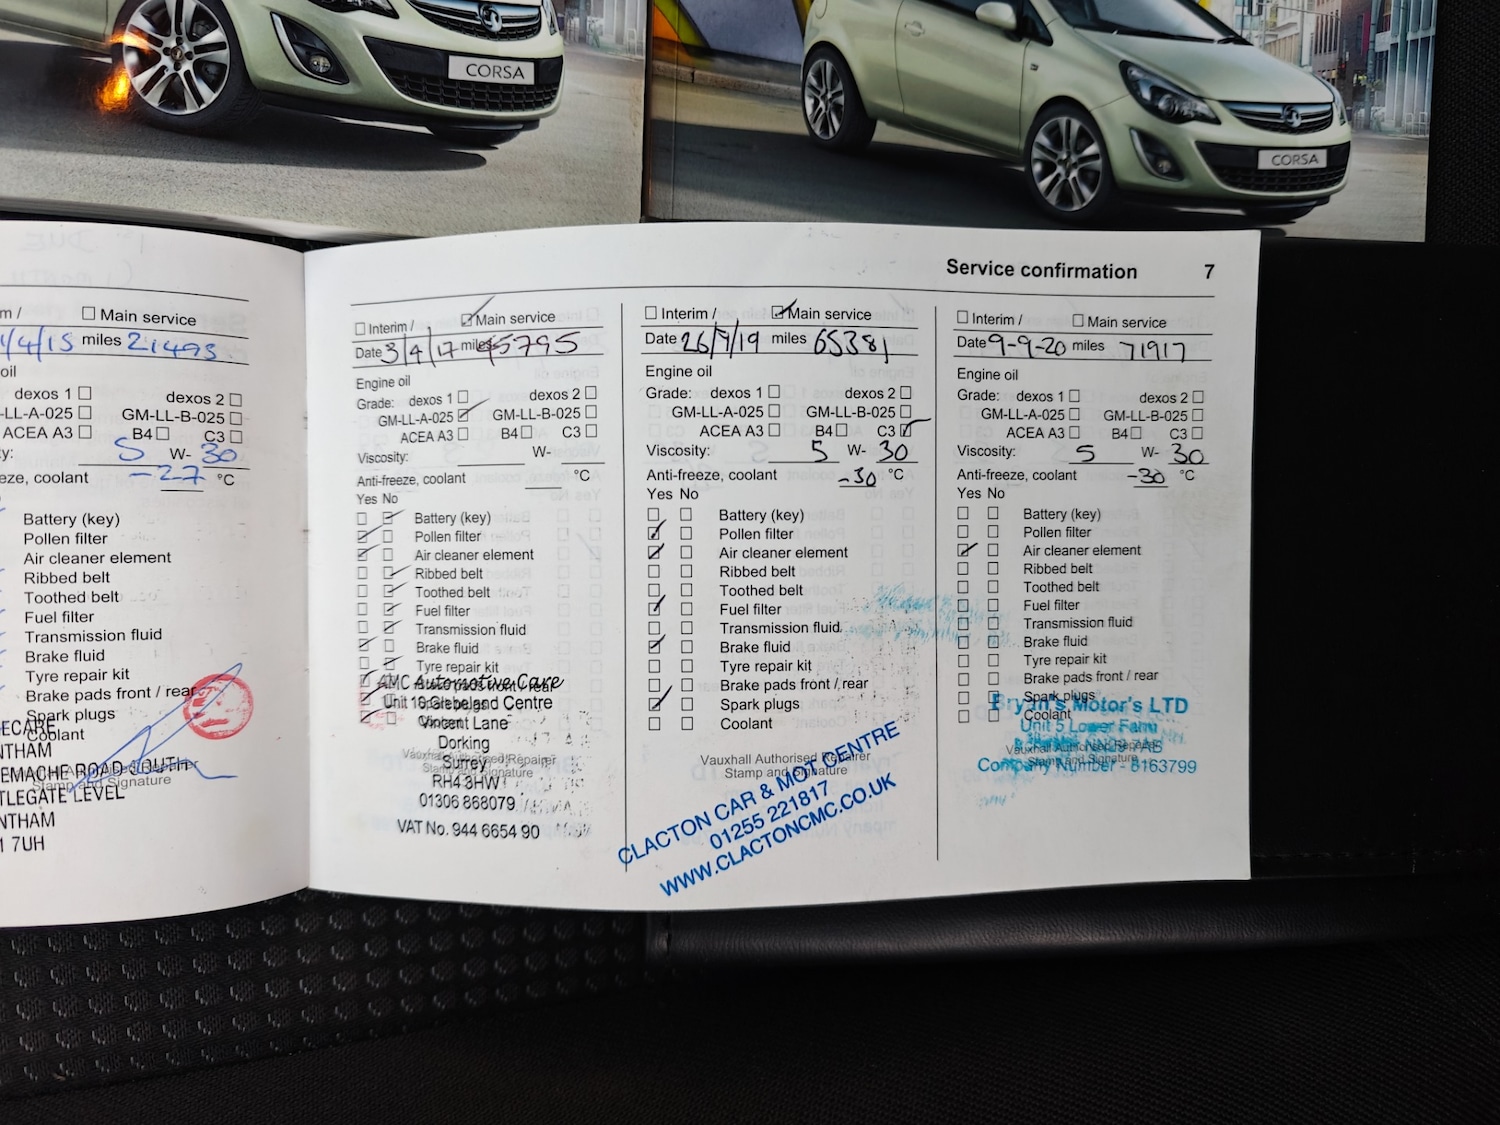 CORSA
CORSA
Service confirmation 7
m / Main service
/4/15 miles 21493
oil
dexos 1 dexos 2
-LL-A-025 GM-LL-B-025
ACEA A3 B4 C3
y: 5 W- 30
eze, coolant -27 °C
Battery (key)
Pollen filter
Air cleaner element
Ribbed belt
Toothed belt
Fuel filter
Transmission fluid
Brake fluid
Tyre repair kit
Brake pads front / rear
Spark plugs
Coolant
ECARE
NTHAM
EMACHE ROAD SOUTH
Stamp and Signature
TLEGATE LEVEL
NTHAM
1 7UH
Interim / Main service
Date 3/4/17 miles 45795
Engine oil
Grade: dexos 1 dexos 2
GM-LL-A-025 GM-LL-B-025
ACEA A3 B4 C3
Viscosity: W-
Anti-freeze, coolant °C
Yes No
Battery (key)
Pollen filter
Air cleaner element
Ribbed belt
Toothed belt
Fuel filter
Transmission fluid
Brake fluid
Tyre repair kit
AMC Automotive Care
Glebeland Centre
Vincent Lane
Dorking
Vauxhall Authorised Repairer
Surrey
Stamp and Signature
RH4 3HW
01306 868079
VAT No. 944 6654 90
Interim / Main service
Date 26/9/19 miles 65381
Engine oil
Grade: dexos 1 dexos 2
GM-LL-A-025 GM-LL-B-025
ACEA A3 B4 C3
Viscosity: 5 W- 30
Anti-freeze, coolant -30 °C
Yes No
Battery (key)
Pollen filter
Air cleaner element
Ribbed belt
Toothed belt
Fuel filter
Transmission fluid
Brake fluid
Tyre repair kit
Brake pads front / rear
Spark plugs
Coolant
Vauxhall Authorised Repairer
Stamp and Signature
CLACTON CAR & MOT CENTRE
01255 221817
WWW.CLACTONCMC.CO.UK
Interim / Main service
Date 9-9-20 miles 71917
Engine oil
Grade: dexos 1 dexos 2
GM-LL-A-025 GM-LL-B-025
ACEA A3 B4 C3
Viscosity: 5 W- 30
Anti-freeze, coolant -30 °C
Yes No
Battery (key)
Pollen filter
Air cleaner element
Ribbed belt
Toothed belt
Fuel filter
Transmission fluid
Brake fluid
Tyre repair kit
Brake pads front / rear
Spark plugs
Bryan's Motor's LTD
Coolant
Unit 5 Lower Farm
Vauxhall Authorised Repairer
Stamp and Signature
Company Number - 8163799